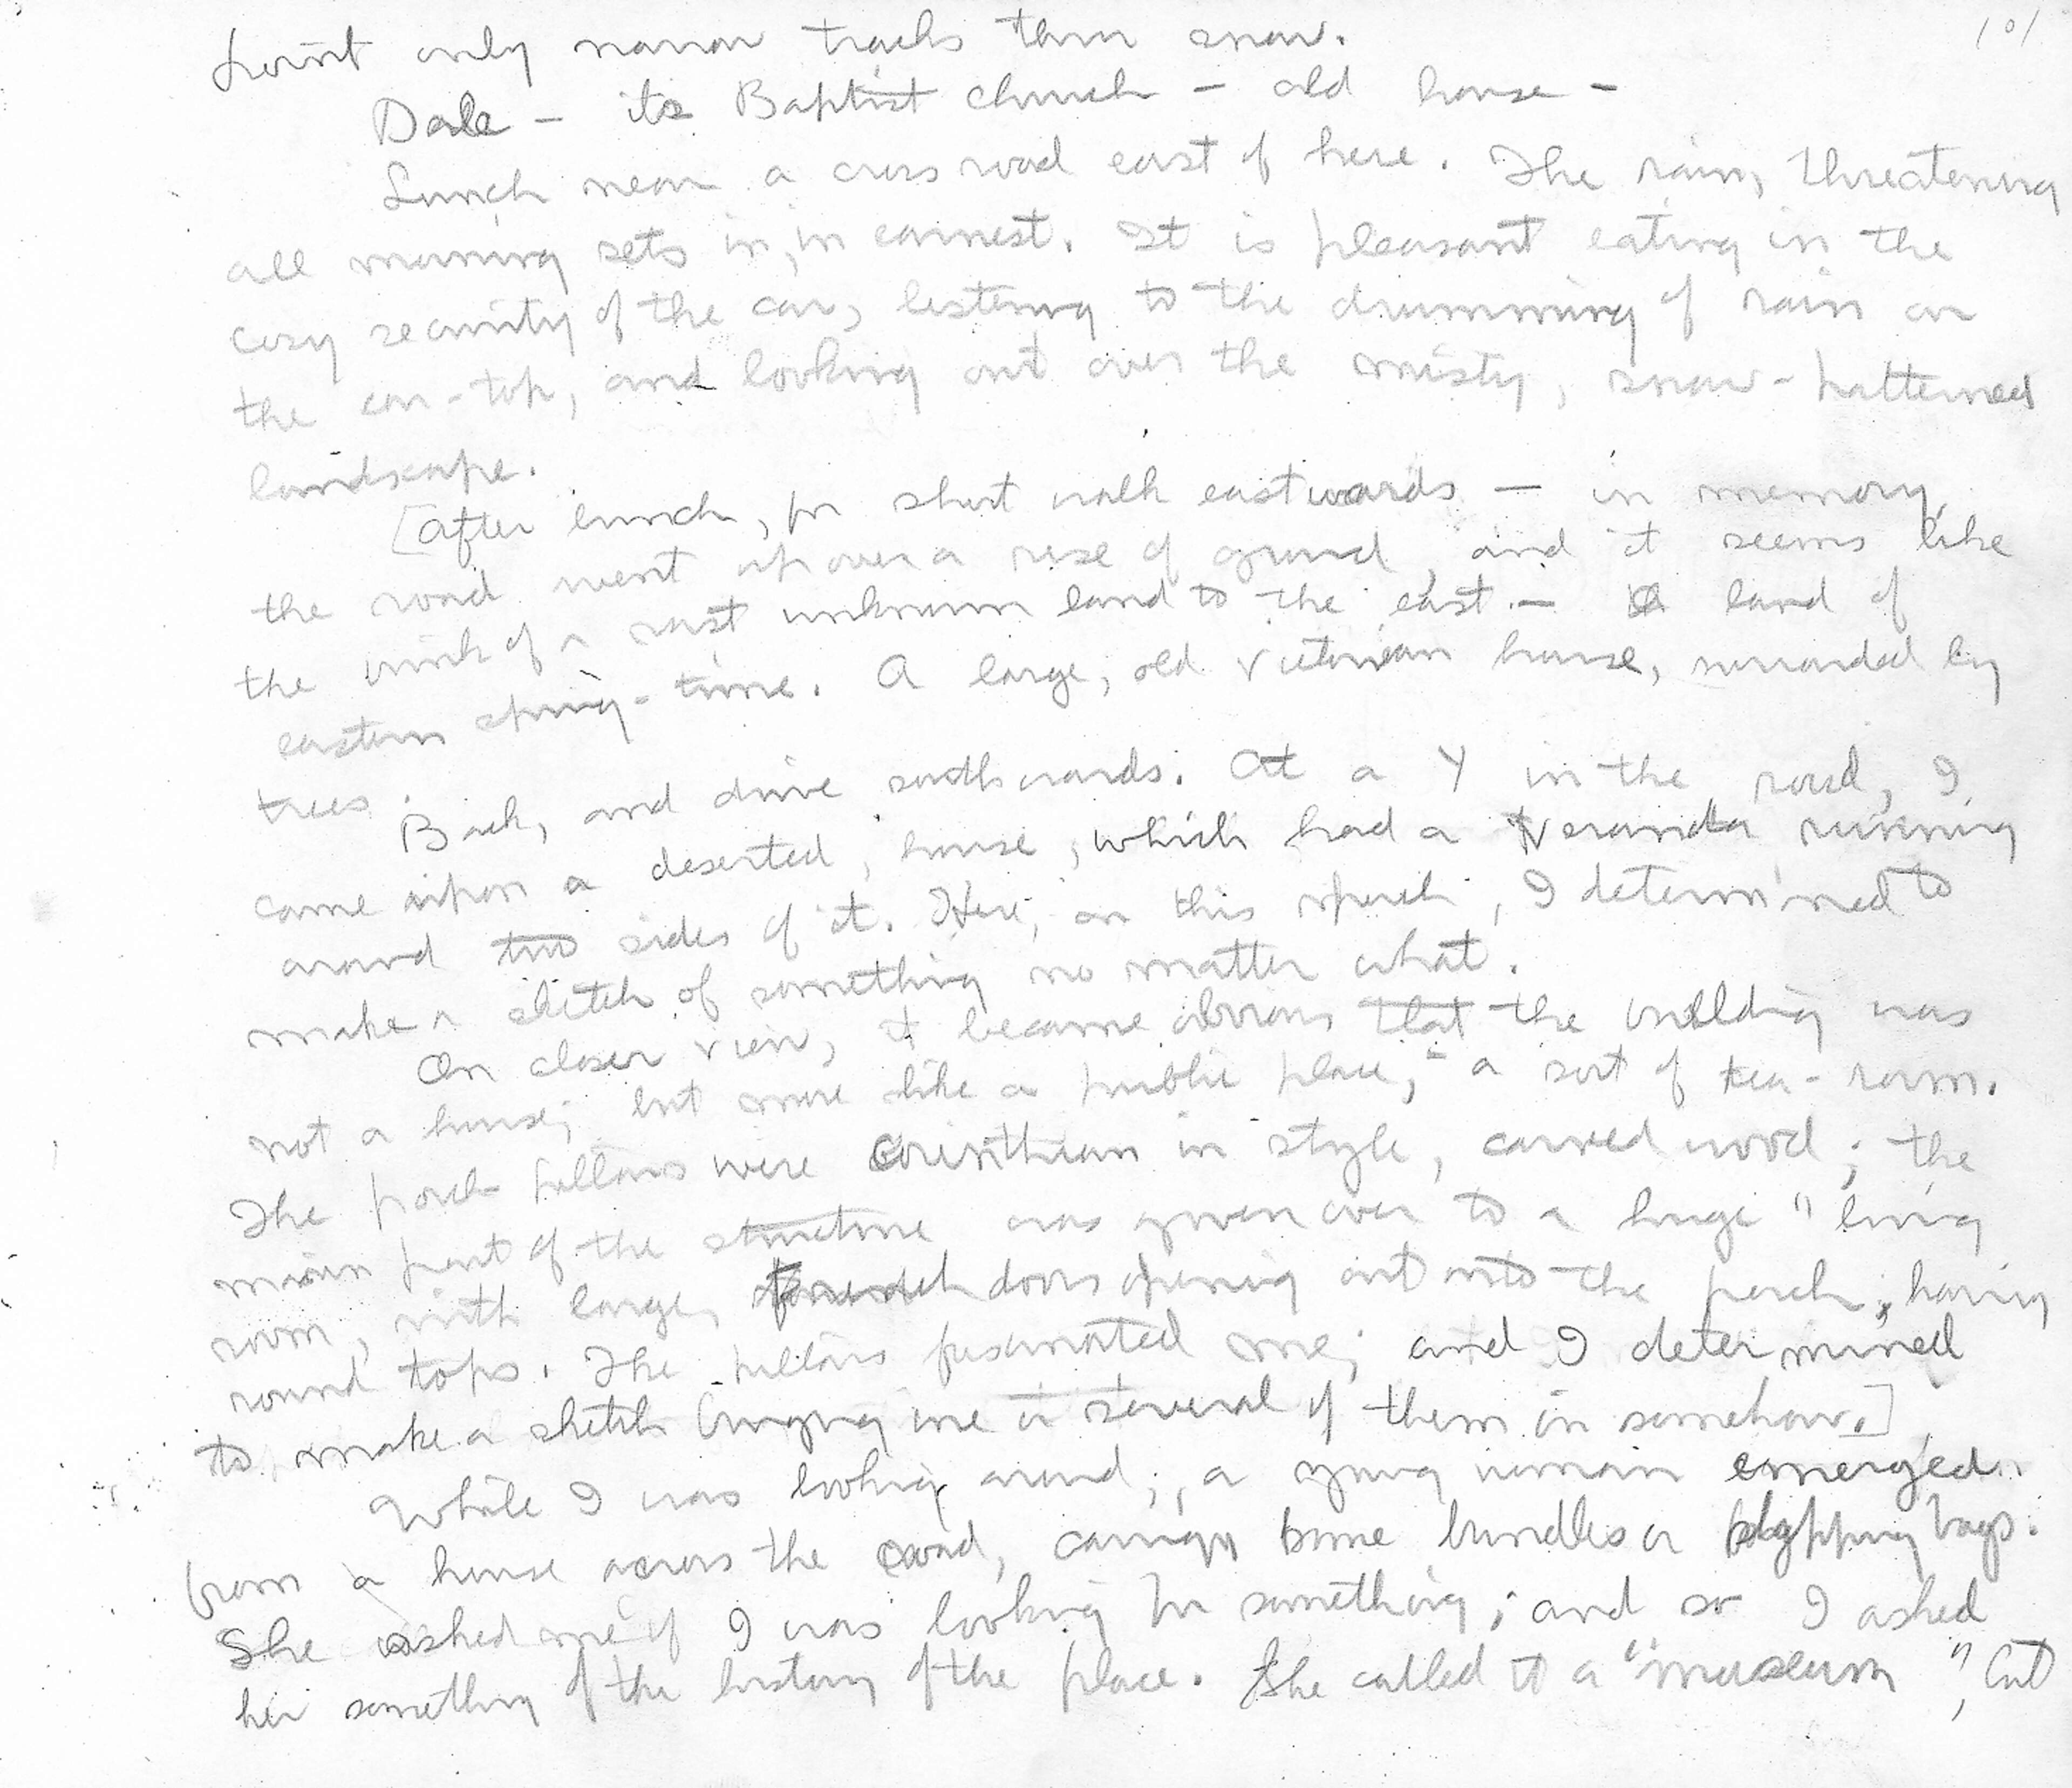 101
point only narrow tracks thru snow.
Dale – its Baptist church – old house –
Lunch near a cross road east of here. The rain, threatening
all morning sets in, in earnest. It is pleasant eating in the
cozy security of the car, listening to the drumming of rain on
the car-top, and looking out over the misty, snow-patterned
landscape.
[After lunch, for short walk eastwards – in memory,
the road went up over a rise of ground, and it seems like
the brink of a vast unknown land to the east – a land of
eastern spring-time. A large, old Victorian house, surrounded by
trees.
Back, and drive southwards. At a Y in the road, I
came upon a deserted, house, which had a veranda running
around two sides of it. Here, on this porch, I determined to
make a sketch of something no matter what.
On closer view, it became obvious that the building was
not a house; but more like a public place, – a sort of tea-room.
The porch pillars were Corinthian in style, carved wood; the
main part of the structure was given over to a huge "living
room, with large, french doors opening out onto the porch, having
round tops. The pillars fascinated me; and I determined
to make a sketch bringing one or several of them in somehow.]
While I was looking around, a young woman emerged
from a house across the road, carrying some bundles or shopping bags.
She asked me if I was looking for something; and so I asked
her something of the history of the place. She called it a "museum", but